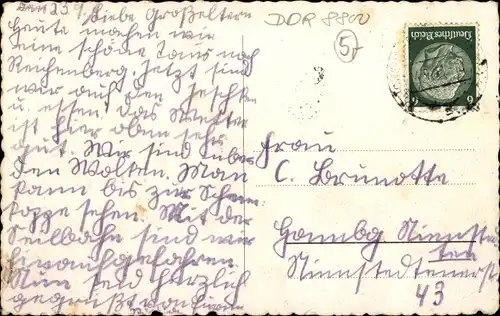 den 23.9. Liebe Großeltern
heute machen wir
eine schöne Tour nach
Reichenberg. Jetzt sind
wir auf den Jeschken
u. essen. Das Wetter
ist hier oben sehr
gut. Wir sind über
den Wolken. Man
kann bis zur Schnee
koppe sehen. Mit der
Seilbahn sind wir
hinaufgefahren.
Nun seid herzlich
gegrüßt von
DDR 8800
5,-
Deutsches Reich
6 6
Frau
C. Brunotte
Hambg Nienste
ten
Nienstedtenerst
43